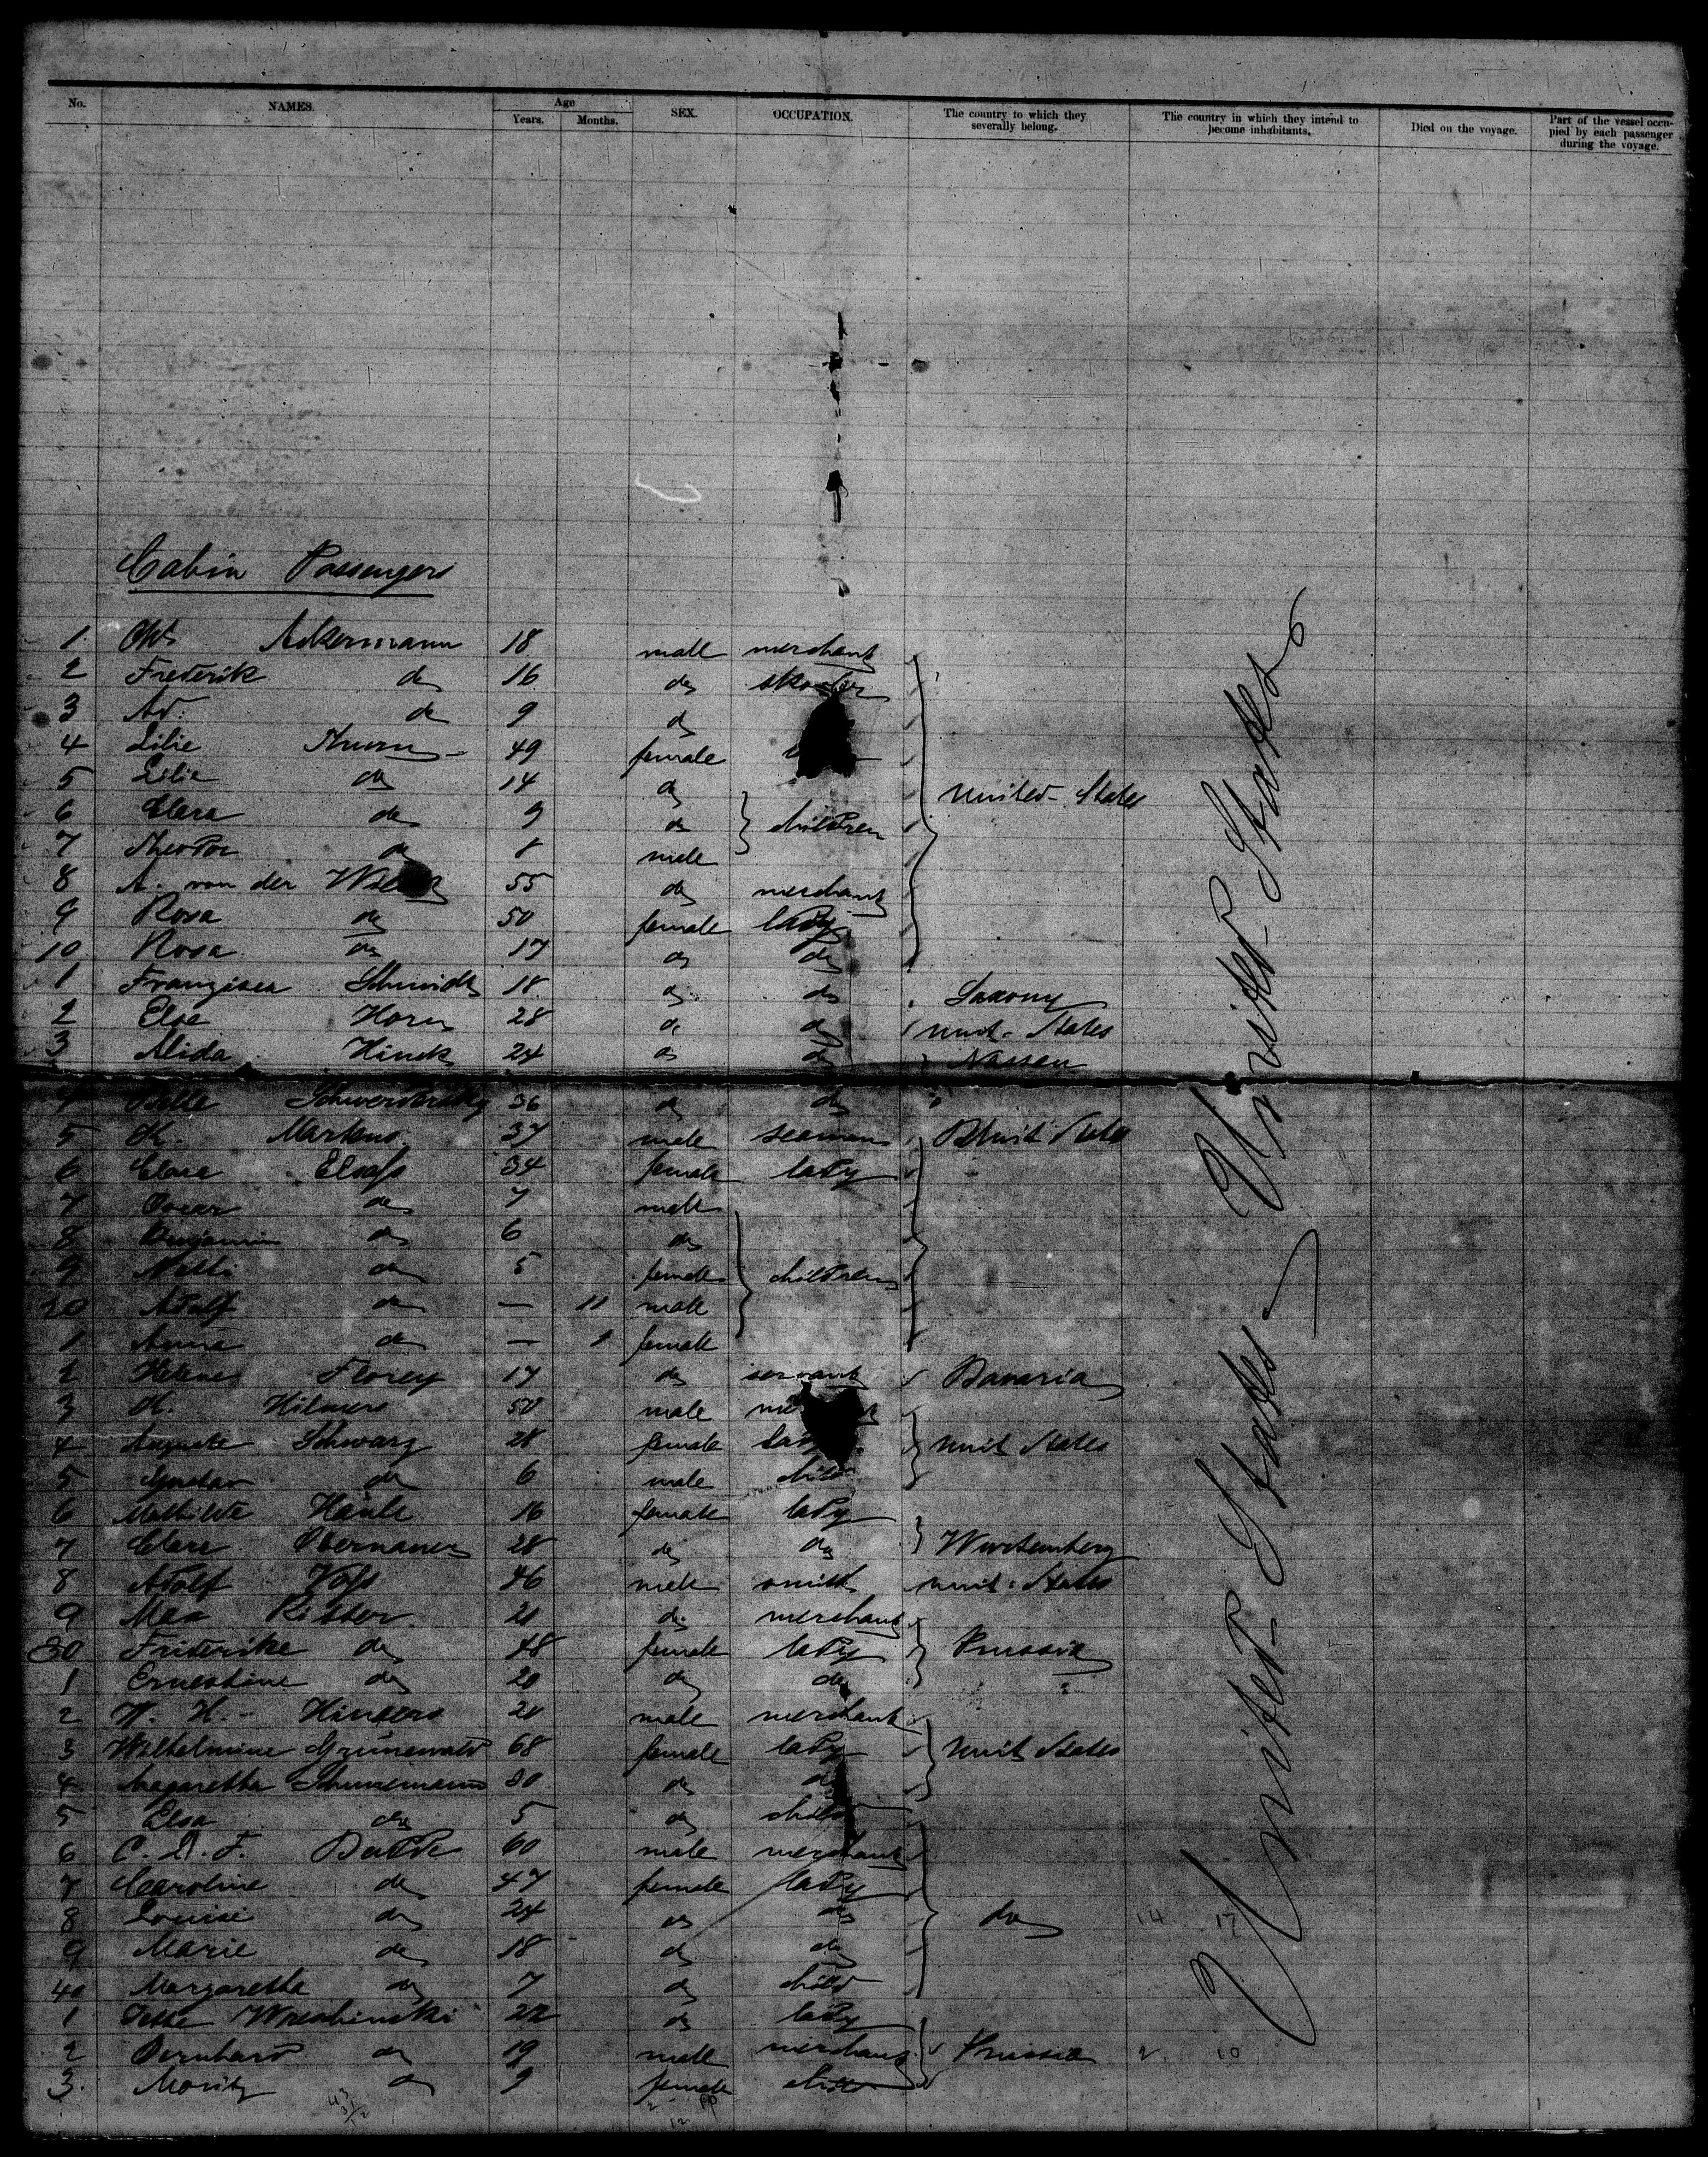 No. NAMES. Age Years. Months. SEX. OCCUPATION. The country to which they severally belong. The country in which they intend to become inhabitants. Died on the voyage. Part of the vessel occupied by each passenger during the voyage.
Cabin Passengers
1 Ackermann 18 male merchant
2 Frederik do 16 do
3 Ad. do 9 do
4 Lilie 49 female
5 Lilie do 14 do
United States
6 Clara do 9 do children
7 Theodor do 8 male
8 A. von der 55 do merchant
9 Rosa do 50 female lady
10 Rosa do 17 do do
1 Franzisca Schmidt 18 do do Saxony
2 Elsa Horn 28 do do Unit. States
3 Alida Hinck 24 do do Nassau
4 36 do do
5 H. Martens 37 male seaman Unit States
6 Clara Elsass 34 female lady
7 Oscar do 7 male
8 Benjamin do 6 do
9 Nelli do 5 female children
20 Adolf do — 11 male
1 Anna do — female
2 Helene Florey 17 do servant Bavaria
3 H. Hilmers 50 male
4 Auguste Schwarz 28 female lady Unit States
5 Gustav do 6 male child
6 Mathilde 16 female lady
7 Clara Obernauer 28 do do Wurtemberg
8 Adolf Voss 46 male smith Unit. States
9 Max Ritter 21 do merchant
30 Friderike do 48 female lady Prussia
1 Ernestine do 20 do do
2 W. H. Hinners 20 male merchant
3 Wilhelmine Grünewald 68 female lady Unit States
4 Magaretha Schünemann 30 do do
5 Elsa do 5 do child
6 C. D. F. 60 male merchant
7 Caroline do 47 female lady
8 Louise do 24 do do do 14 17
9 Marie do 18 do do
40 Margaretha do 7 do child
1 Jette Wreshinski 22 do lady
2 Bernhard do 19 male merchant Prussia 2 10
3. Moritz do 9 female child
United States United States